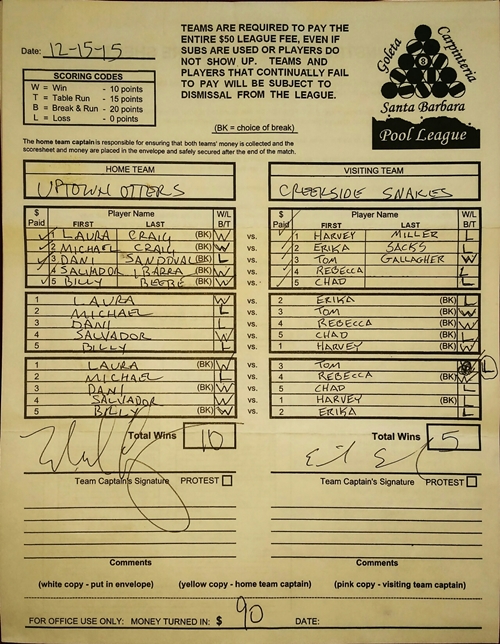 Date: 12-15-15
TEAMS ARE REQUIRED TO PAY THE
ENTIRE $50 LEAGUE FEE, EVEN IF
SUBS ARE USED OR PLAYERS DO
NOT SHOW UP. TEAMS AND
PLAYERS THAT CONTINUALLY FAIL
TO PAY WILL BE SUBJECT TO
DISMISSAL FROM THE LEAGUE.
Goleta Carpinteria
8
Santa Barbara
Pool League
SCORING CODES
W = Win - 10 points
T = Table Run - 15 points
B = Break & Run - 20 points
L = Loss - 0 points
(BK = choice of break)
The home team captain is responsible for ensuring that both teams' money is collected and the
scoresheet and money are placed in the envelope and safely secured after the end of the match.
HOME TEAM VISITING TEAM
UPTOWN OTTERS CREEKSIDE SNAKES
$ Paid Player Name FIRST LAST W/L B/T $ Paid Player Name FIRST LAST W/L B/T
1 LAURA CRAIG (BK) W vs. 1 HARVEY MILLER L
2 MICHAEL CRAIG (BK) W vs. 2 ERIKA SACKS L
3 DANI SANDOVAL (BK) L vs. 3 TOM GALLAGHER W
4 SALVADOR IBARRA (BK) W vs. 4 REBECCA L
5 BILLY BEEBE (BK) W vs. 5 CHAD L
1 LAURA W vs. 2 ERIKA (BK) L
2 MICHAEL L vs. 3 TOM (BK) W
3 DANI L vs. 4 REBECCA (BK) W
4 SALVADOR W vs. 5 CHAD (BK) L
5 BILLY L vs. 1 HARVEY (BK) W
1 LAURA (BK) W vs. 3 TOM L
2 MICHAEL L vs. 4 REBECCA (BK) W
3 DANI (BK) W vs. 5 CHAD L
4 SALVADOR W vs. 1 HARVEY (BK) L
5 BILLY (BK) W vs. 2 ERIKA L
Total Wins 10 Total Wins 5
Team Captain's Signature PROTEST Team Captain's Signature PROTEST
Comments Comments
(white copy - put in envelope) (yellow copy - home team captain) (pink copy - visiting team captain)
FOR OFFICE USE ONLY: MONEY TURNED IN: $ 90 DATE: